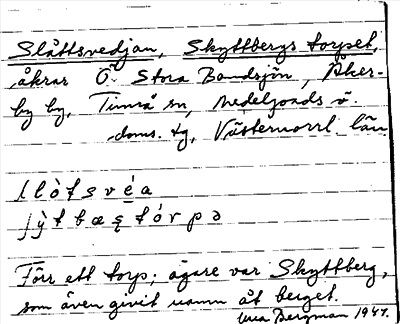 Slåttsvedjan, Skyttbergs torpet,
åkrar Ö. Stora Bandsjön, Åker-
by by, Timrå sn, Medelpads ö.
doms. tg, Västernorrl. län
Förr ett torp; ägare var Skyttberg,
som även givit namn åt berget.
Bergman 1947.